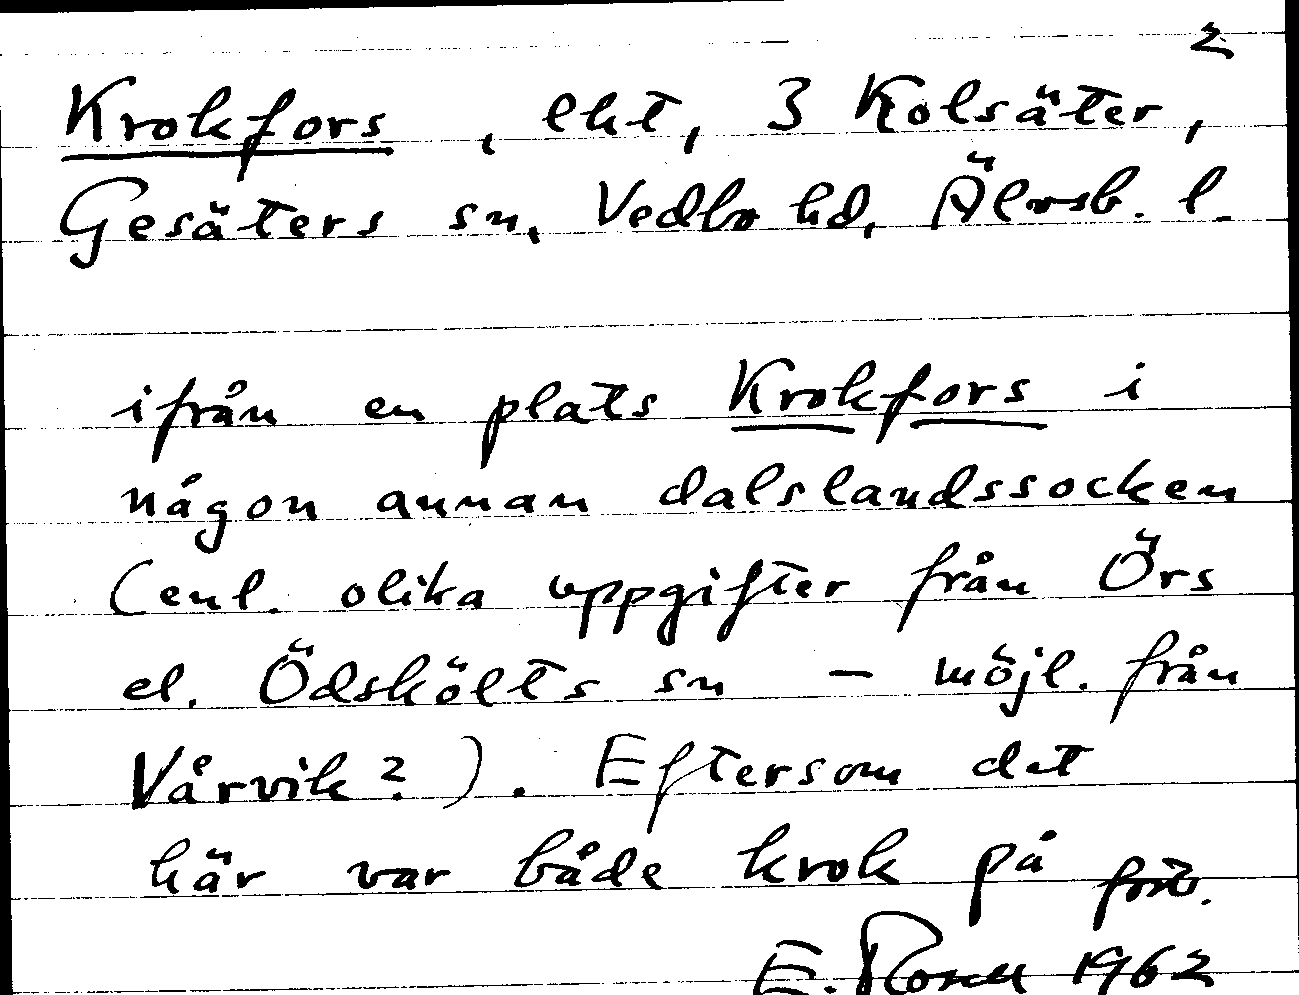 2
Krokfors, lht, 3 Kolsäter,
Gesäters sn, Vedbo hd, Älvsb. l.
ifrån en plats Krokfors i
någon annan dalslandssocken
(enl. olika uppgifter från Örs
el. Ödskölts sn – möjl. från
Vårvik?). Eftersom det
här var både krok på
E. Rosell 1962